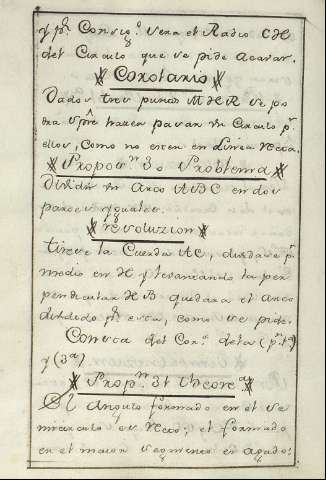 y pr. Consigo. sera el Radio CH
del Circulo que se pide acavar.
Corolario
Dados tres puntos M H R se po
dra spre. hacer pasar un Circulo pr.
ellos, como no esten en Linea recta.
Propon. 3a Problema
Dividir un Arco ABC en dos
partes yguales.
resoluzion
tirese la Cuerda AC, dividase pr.
medio en H y levantando la per
pendicular HB quedara el arco
dividido pr. esta, como se pide.
Consta del Cor. desta (pr. 1a)
y (3a)
Propn. 31 theorea.
El Angulo formado en el se
mi circulo es recto; el formado
en el maior segmento es agudo: